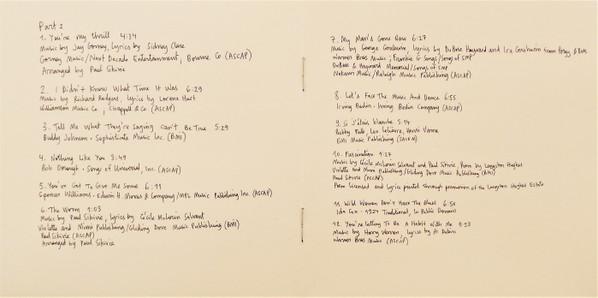 Part 2
1. You're my thrill 4:34
Music by Jay Gorney, Lyrics by Sidney Clare
Gorney Music/Next Decade Entertainment, Bourne Co (ASCAP)
Arranged by Paul Sikivie
2. I Didn't Know What Time It Was 6:29
Music by Richard Rodgers, lyrics by Lorenz Hart
Williamson Music Co, Chappell & Co. (ASCAP)
3. Tell Me What They're Saying Can't Be True 5:29
Buddy Johnson - Sophisticate Music Inc. (BMI)
4. Nothing Like You 3:49
Bob Dorough - Songs of Universal, Inc. (ASCAP)
5. You've Got To Give Me Some 6:11
Spencer Williams - Edwin H Morris & Company/MPL Music Publishing Inc. (ASCAP)
6. The Worm 1:03
Music by Paul Sikivie, Lyrics by Cécile McLorin Salvant
Violette and Mimi Publishing/Gliding Dove Music Publishing (BMI)
Paul Sikivie (ASCAP)
Arranged by Paul Sikivie
7. My Man's Gone Now 6:27
Music by George Gershwin, lyrics by DuBose Heyward and Ira Gershwin from Porgy & Bess
Warner Bros Music, Frankie G Songs/Songs of SMP
DuBose & Heyward Memorial/Songs of SMP
Nokawi Music/Raleigh Music Publishing (ASCAP)
8. Let's Face The Music And Dance 6:55
Irving Berlin - Irving Berlin Company (ASCAP)
9. Si J'étais blanche 5:14
Bobby Falk, Leo Lelièvre, Henri Varna
EMI Music Publishing (SACEM)
10. Fascination 1:27
Music by Cécile McLorin Salvant and Paul Sikivie, Poem by Langston Hughes
Violette and Mimi Publishing/Gliding Dove Music Publishing (BMI)
Paul Sikivie (ASCAP)
Poem licensed and lyrics printed through permission of the Langston Hughes Estate
11. Wild Women Don't Have The Blues 6:50
Ida Cox - 1924 Traditional, In Public Domain
12. You're Getting To Be A Habit With Me 9:23
Music by Harry Warren, lyrics by Al Dubin
Warner Bros Music (ASCAP)